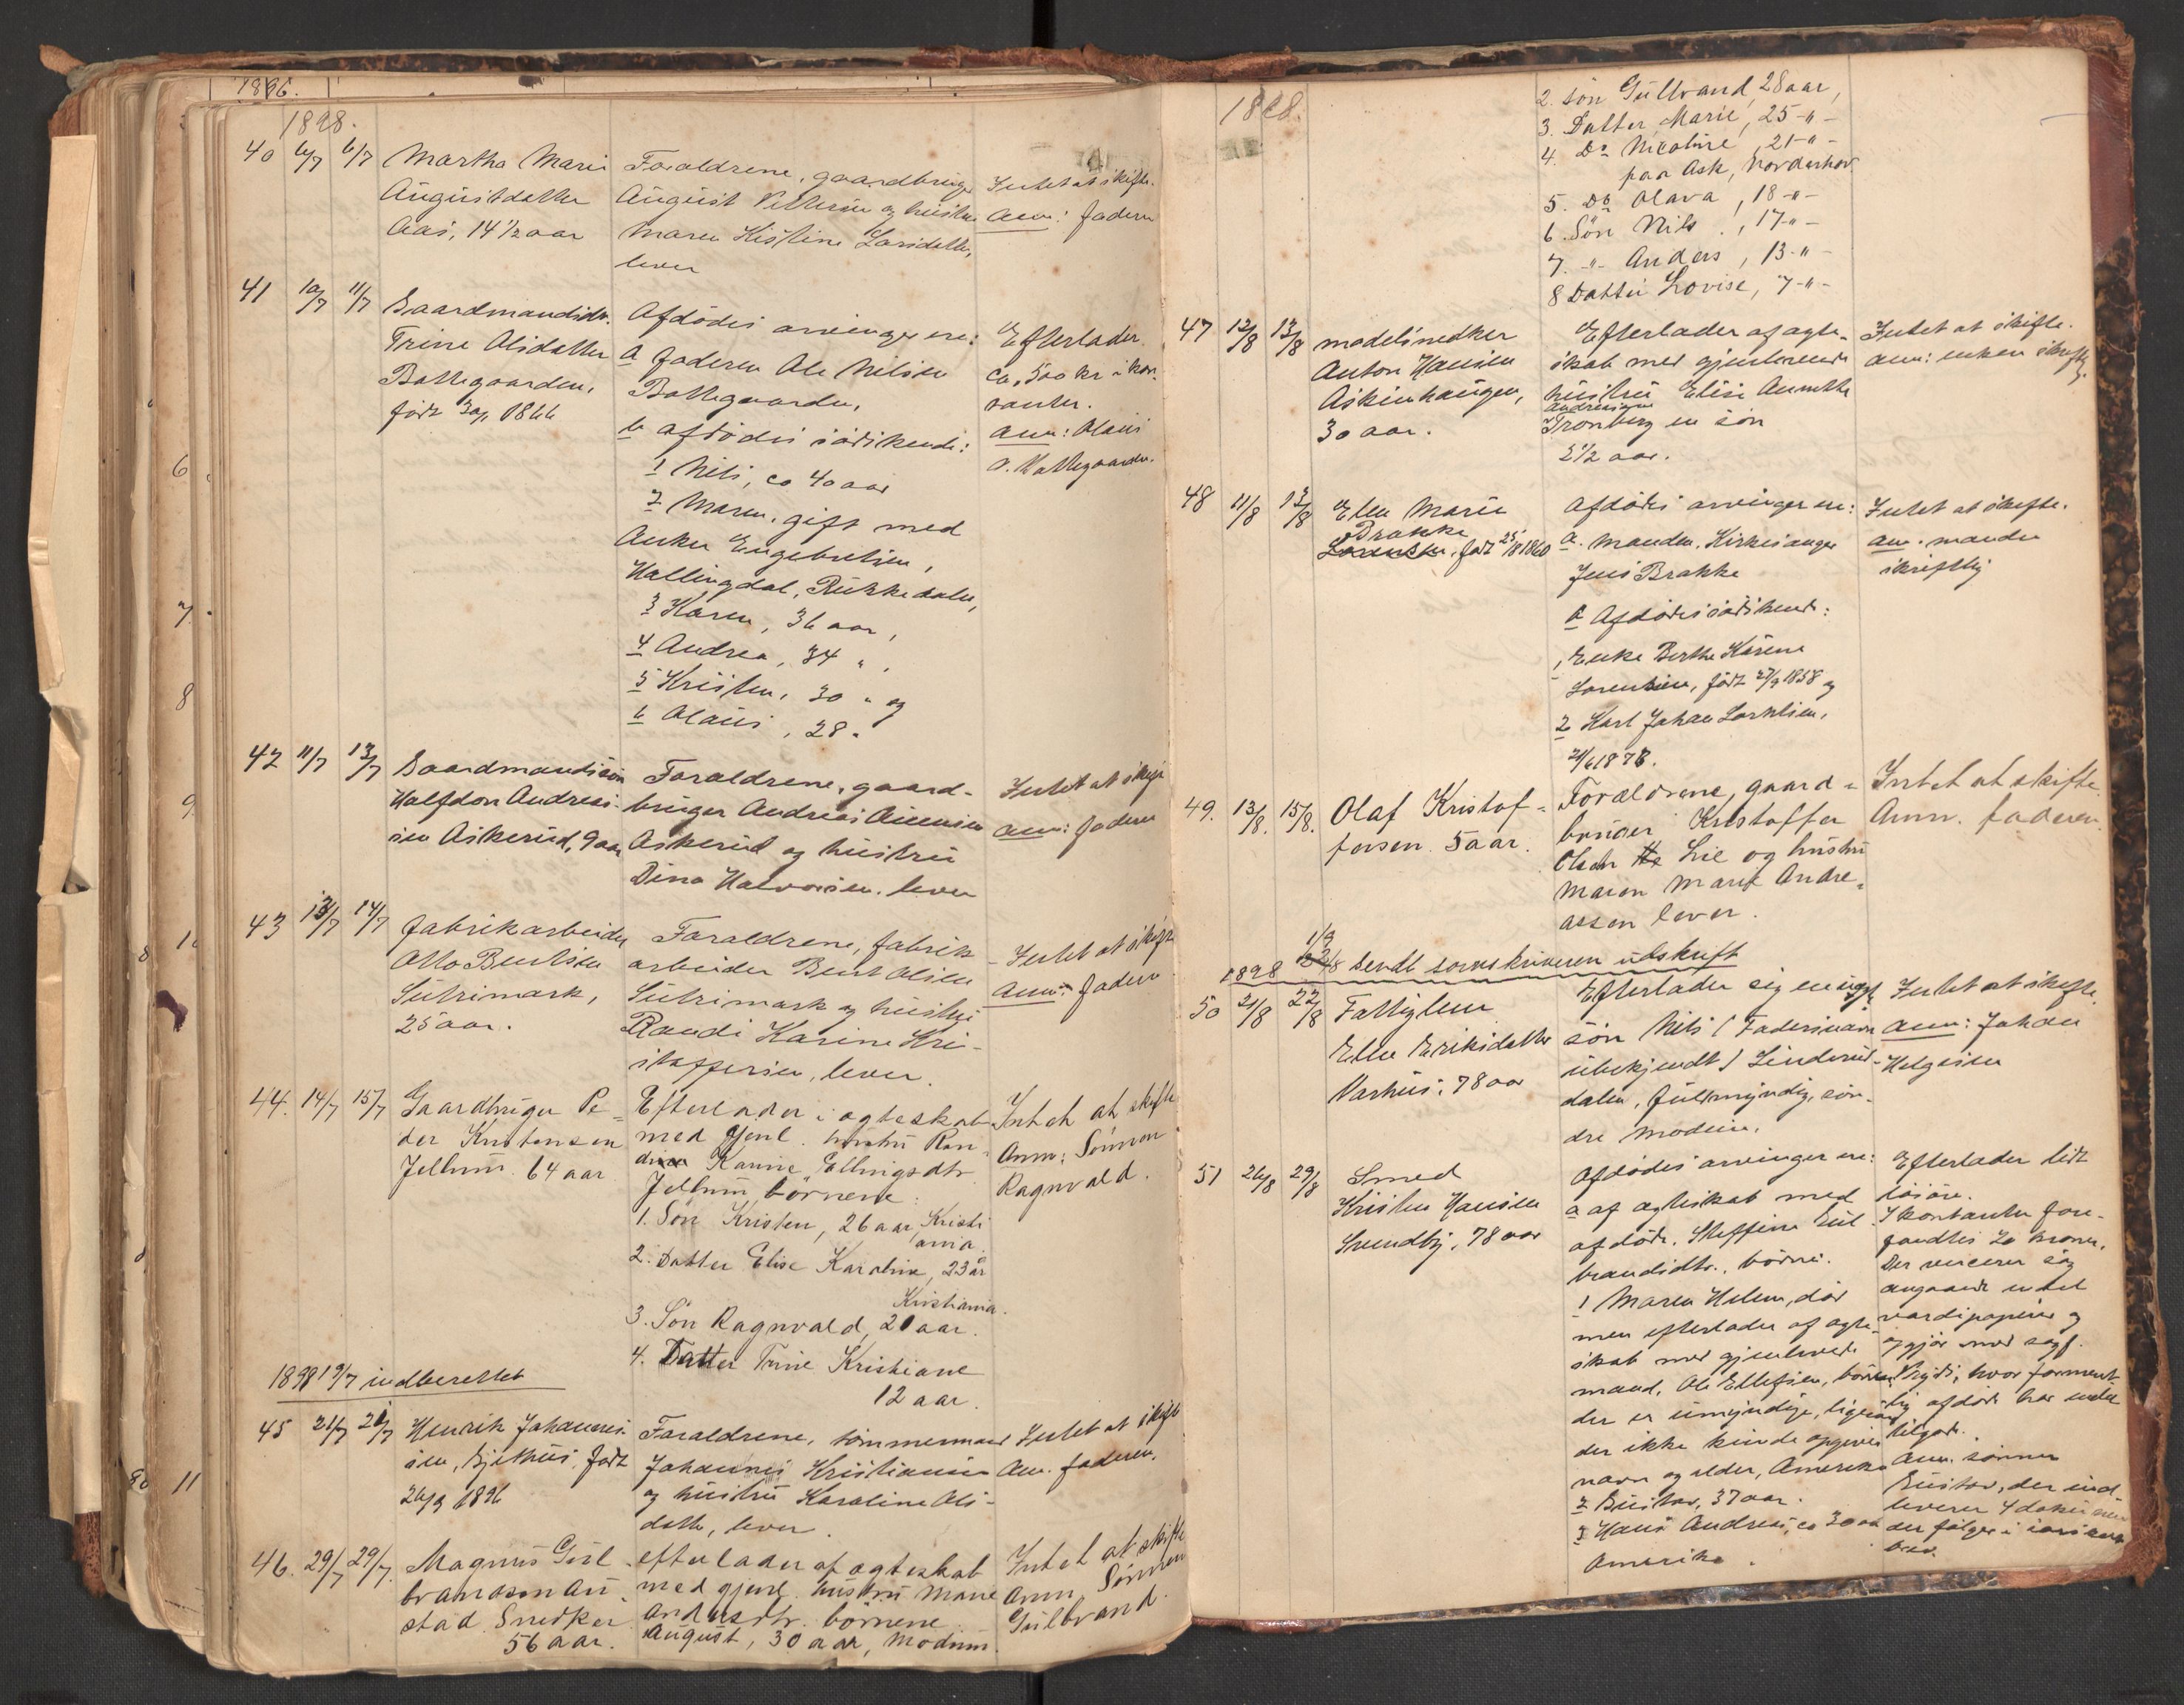 1896.
1898.
40 6/7 6/7 Martha Marie
Augustdatter
Aas, 14 1/2 aar
Foraldrene, gaardbruger
August Pettersen og hustru
Maren Kistine Larsdatter,
lever
Intet at skifte.
Anm: faderen
41 10/7 11/7 Gaardmandsdtr.
Trine Olsdatter
Bottegaarden,
født 30/1 1866
Afdødes arvinger ere:
a faderen Ole Nilsen
Bottegaarden,
b afdødes södskende:
1 Nils, ca 40 aar
2 Maren, gift med
Anken Engebretsen,
Hallingdal, Rukkedalen,
3 Karen, 36 aar,
4 Andrea, 34 " ,
5 Kristen, 30 " og
6 Olaus, 28 "
Efterlader
ca. 500 kr i kon-
tanter.
Anm: Olaus
O. Bottegaarden.
42 11/7 13/7 Gaardmandssön
Halfdan Andreas-
sen Askerud, 9 aar
Foraldrene, gaard-
bruger Andreas Amensen
Askerud og hustru
Dina Halvorsen, lever
Intet at skifte
Anm: faderen
43 13/7 14/7 Fabrikarbeider
Otto Bentsen
Sutrimark,
25 aar.
Foraldrene, fabrik
arbeider Bent Olsen
Sutrimark og hustru
Randi Karine Kri-
stoffersen, lever.
Intet at skifte
Anm: faderen
44. 14/7 15/7 Gaardbruger Pe-
der Kristensen
Jellum 64 aar
Efterlader i ægteskab
med gjenl. hustru Ran-
dina Karine Ellingsdtr.
Jellum börnene:
1. Sön Kristen, 26 aar, Kristi
ania.
2. Datter Elise Karoline, 23 år
Kristiania.
3. Sön Ragnvald, 20 aar.
4. Datter Trine Kristiane
12 aar.
Intet at skifte
Anm: Sönnen
Ragnvald.
1898 19/7 indberettet
45 21/7 21/7 Henrik Johannes-
sen, Bjethus, født
26/9 1896
Foraldrene, tömmermand
Johannes Kristiansen
og hustru Karoline Ols-
datter, lever.
Intet at skifte
Anm. faderen.
46. 29/7 29/7. Magnus Gul-
brandsen Au-
stad Snedker
56 aar.
efterlader af ægteskab
med gjenl. hustru Marie
Andersdtr. börnene
August, 30 aar, Modum.
Intet at skifte
Anm. Sönnen
Gulbrand.
1898.
2. sön Gulbrand, 28 aar,
3. Datter Marie, 25 -"-
4. Do Nicoline, 21 -"-
paa Ask, Norderhov
5. Do Olava, 18 -"-
6. Sön Nils, 17 -"-
7. -"- Anders, 13 -"-
8 Datter Lovise, 7 -"-
47 12/8 13/8 modelsnedker
Anton Hansen
Askenhaugen,
30 aar.
Efterlader af ægte-
skab med gjenlevende
hustru Elise Annette
Andreasen
Tronberg en sön
2 1/2 aar.
Intet at skifte.
Anm: enken skriftlig.
48 11/8 13/8 Ellen Marie
Brakke
Lorentsen, født 25/8 1860
Afdødes arvinger ere:
a. manden, Kirkesanger
Jens Brakke
b Afdødes södskende:
1 Enke Berthe Karine
Lorentsen, født 27/9 1858 og
2 Karl Johan Lorentsen,
21/6 1878.
Intet at skifte.
Anm. manden
skriftlig
49. 13/8. 15/8. Olaf Kristof-
fersen 5 aar.
Foraldrene, gaard-
bruger Kristoffer
Olsen Lie og hustru
Maren Marie Andre-
assen lever.
Intet at skifte.
Anm. faderen.
1898 1/9 sendt sorenskriveren udskrift
50 21/8 22/8 Fattiglem
Ellen Eriksdatter
Varhus, 78 aar
Efterlader sig en uægte
sön Nils (Faderens navn
ubekjendt) Linderud-
dalen, fuldmyndig, sön
Intet at skifte.
Anm: Johan
Helgesen
51 26/8 29/8 Smed
Kristen Hansen
Svendby, 78 aar
Afdødes arvinger ere:
a af ægteskab med
afdøde Steffine Gul-
brandsdtr., börn:
1 Maren Helene, død
men efterlader af ægte-
skab med gjenlevende
mand, Ole Ellefsen, börn
der er umyndige, ligesom
der ikke kunde opgives
navn og alder, Amerika
2 Gustav, 37 aar.
3 Hans Andreas, ca 30 aar
Amerika.
Efterlader lidt
lösöre.
I kontanter fore-
fandtes 20 kroner.
Der verserer sag
angaaende endel
værdipapirer og
hvor forment-
lig afdøde har endel
tilgode.
Anm. sönnen
Gustav, der ind-
leverer 4 dokumenter
der fölger i
brev.